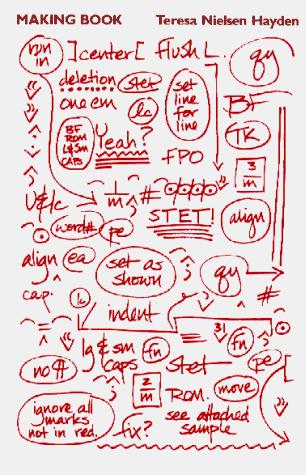 MAKING BOOK Teresa Nielsen Hayden
run in ]center[ flush L. qy
deletion stet set line for line
one em lc BF
BF ROM L&SM CAPS Yeah? TK
FPO 3/m
U&lc 1/m # STET! align
word# pe
align ea set as shown qy
cap. lc indent #
lg & sm caps fn stet 31 fn pe
no # 2/m ROM. move
ignore all marks not in red. fix? see attached sample